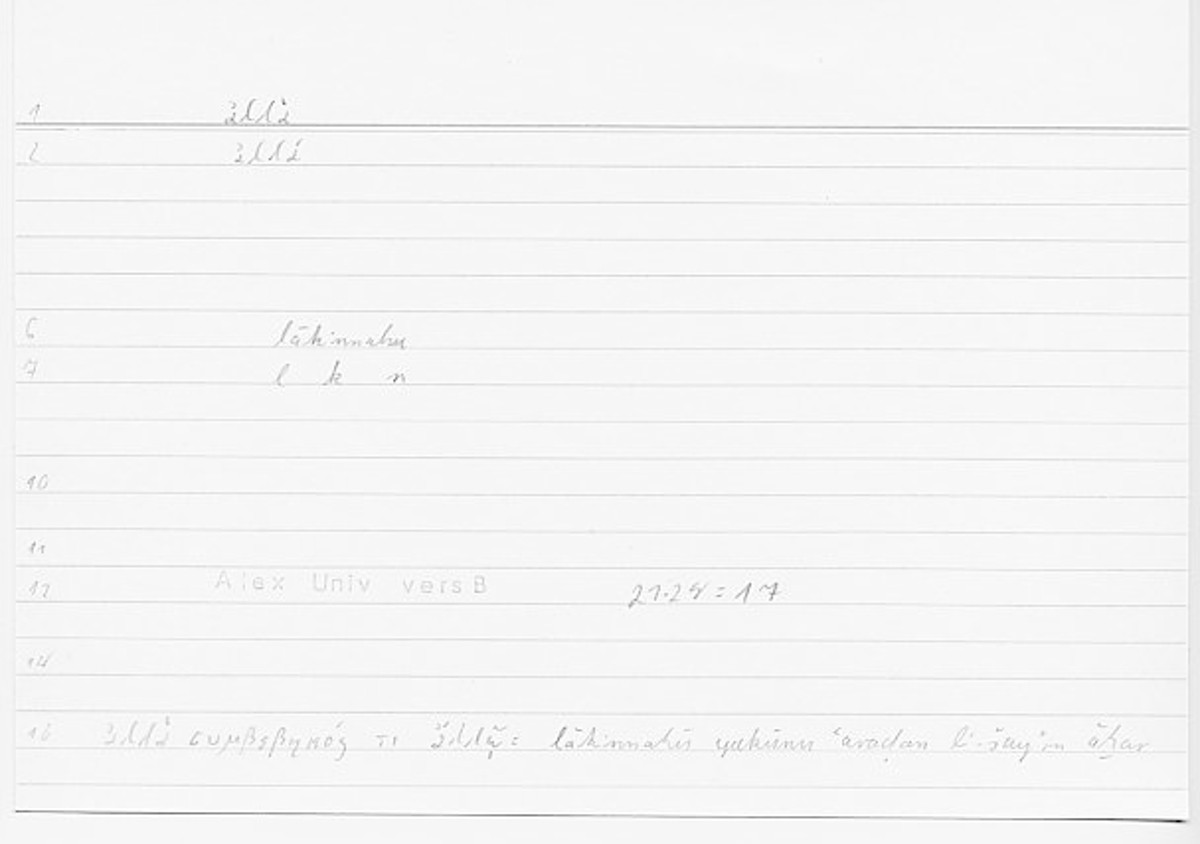 1 ἀλλὰ
2 ἀλλά
6 lākinnahu
7 l k n
10
11
12 Alex Univ vers B 21.28 = 17
14
16 ἀλλὰ συμβεβηκός τι ἄλλῳ = lākinnahū yakūnu ʿaraḍan li-šayʾin āḫar